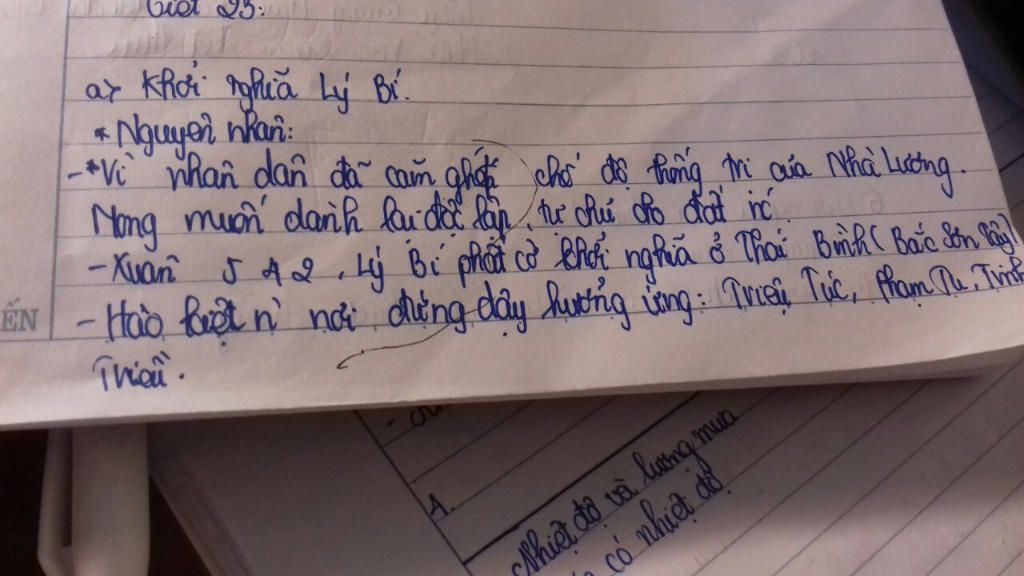 Tiết 23:
a> Khởi nghĩa Lý Bí.
* Nguyên nhân:
-*Vì nhân dân đã căm ghét chế độ thống trị của Nhà Lương.
Mong muốn danh lại độc lập, tự chủ cho đất nc.
- Xuân 542, Lý Bí phất cờ khởi nghĩa ở Thái Bình (Bắc Sơn Tây)
- Hào kiệt n' nơi đứng dậy hưởng ứng: Triệu Túc, Phạm Tu, Tinh
Thiều.
ẾN
A.
Nhiệt độ và lượng mưa
có nhiệt độ.